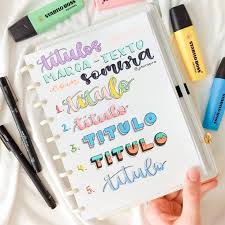 títulos
MARCA-TEXTO
sombra
1. título
2. título
3. TITULO
4. TITULO
5. título
STABILO BOSS
STABILO BOSS